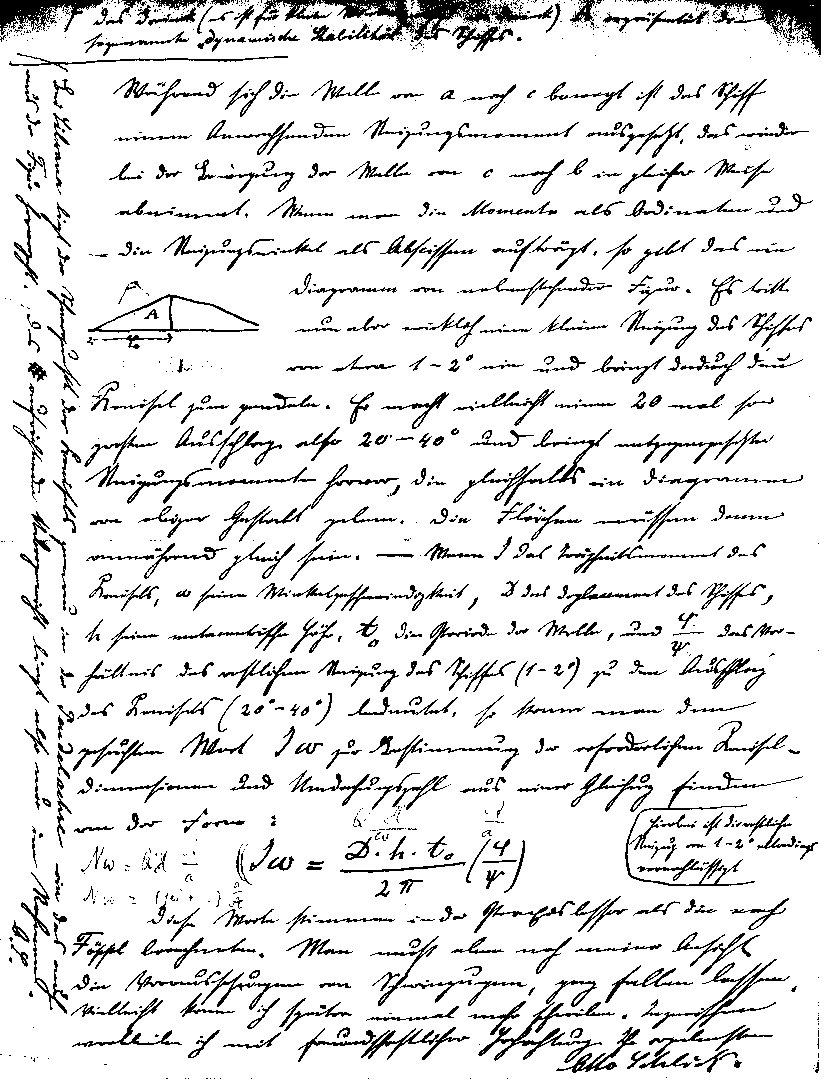 des Dreiecks (es ist für kleine
sogenannte dynamische Stabilität des Schiffes.
Während sich die Welle von a nach c bewegt ist das Schiff
einem Anwachsenden Neigungsmoment ausgesetzt, das wieder
bei der Bewegung der Welle von c nach b in gleicher Weise
abnimmt. Wenn man die Momente als Ordinaten und
die Neigungswinkel als Abscissen aufträgt, so gibt das ein
Diagramm von nebenstehender Figur. Es tritt
A
nun aber wirklich eine kleine Neigung des Schiffes
von etwa 1–2° ein und bringt dadurch den
Kreisel zum pendeln. Er macht vielleicht einen 20 mal so
grossen Ausschlag also 20–40° und bringt entgegengesetzte
Neigungsmomente hervor, die gleichfalls ein Diagramm
von obiger Gestalt geben. Die Flächen müssen dann
annährend gleich sein. — Wenn J das Trägheitsmoment des
Kreisels, ω seine Winkelgeschwindigkeit, D das Deplacement des Schiffes,
h seine metacentrische Höhe, t₀ die Periode der Welle, und φ/ψ das Ver-
hältnis der restlichen Neigung des Schiffes (1–2°) zu dem Ausschlag
des Kreisels (20°–40°) bedeutet, so kann man den
gesuchten Wert Jω zur Bestimmung der erforderlichen Kreisel-
dimensionen und Umdrehungszahl aus einer Gleichung finden
von der Form :
Jω = D·h·t₀ / 2π (φ/ψ)
Hierbei ist die restliche
Neigung von 1–2° allerdings
vernachlässigt
Diese Werte stimmen in der Praxis besser als die nach
Föppl berechneten. Man muss aber nach meiner Ansicht
die Voraussetzungen von Schwingungen, ganz fallen lassen.
Vielleicht kann ich später einmal mehr schreiben. Inzwischen
verbleibe ich mit freundschaftlicher Hochachtung Ihr ergebenster
Otto Schlick.
Der Schwerpunkt des Kreisels genau in der Pendelachse